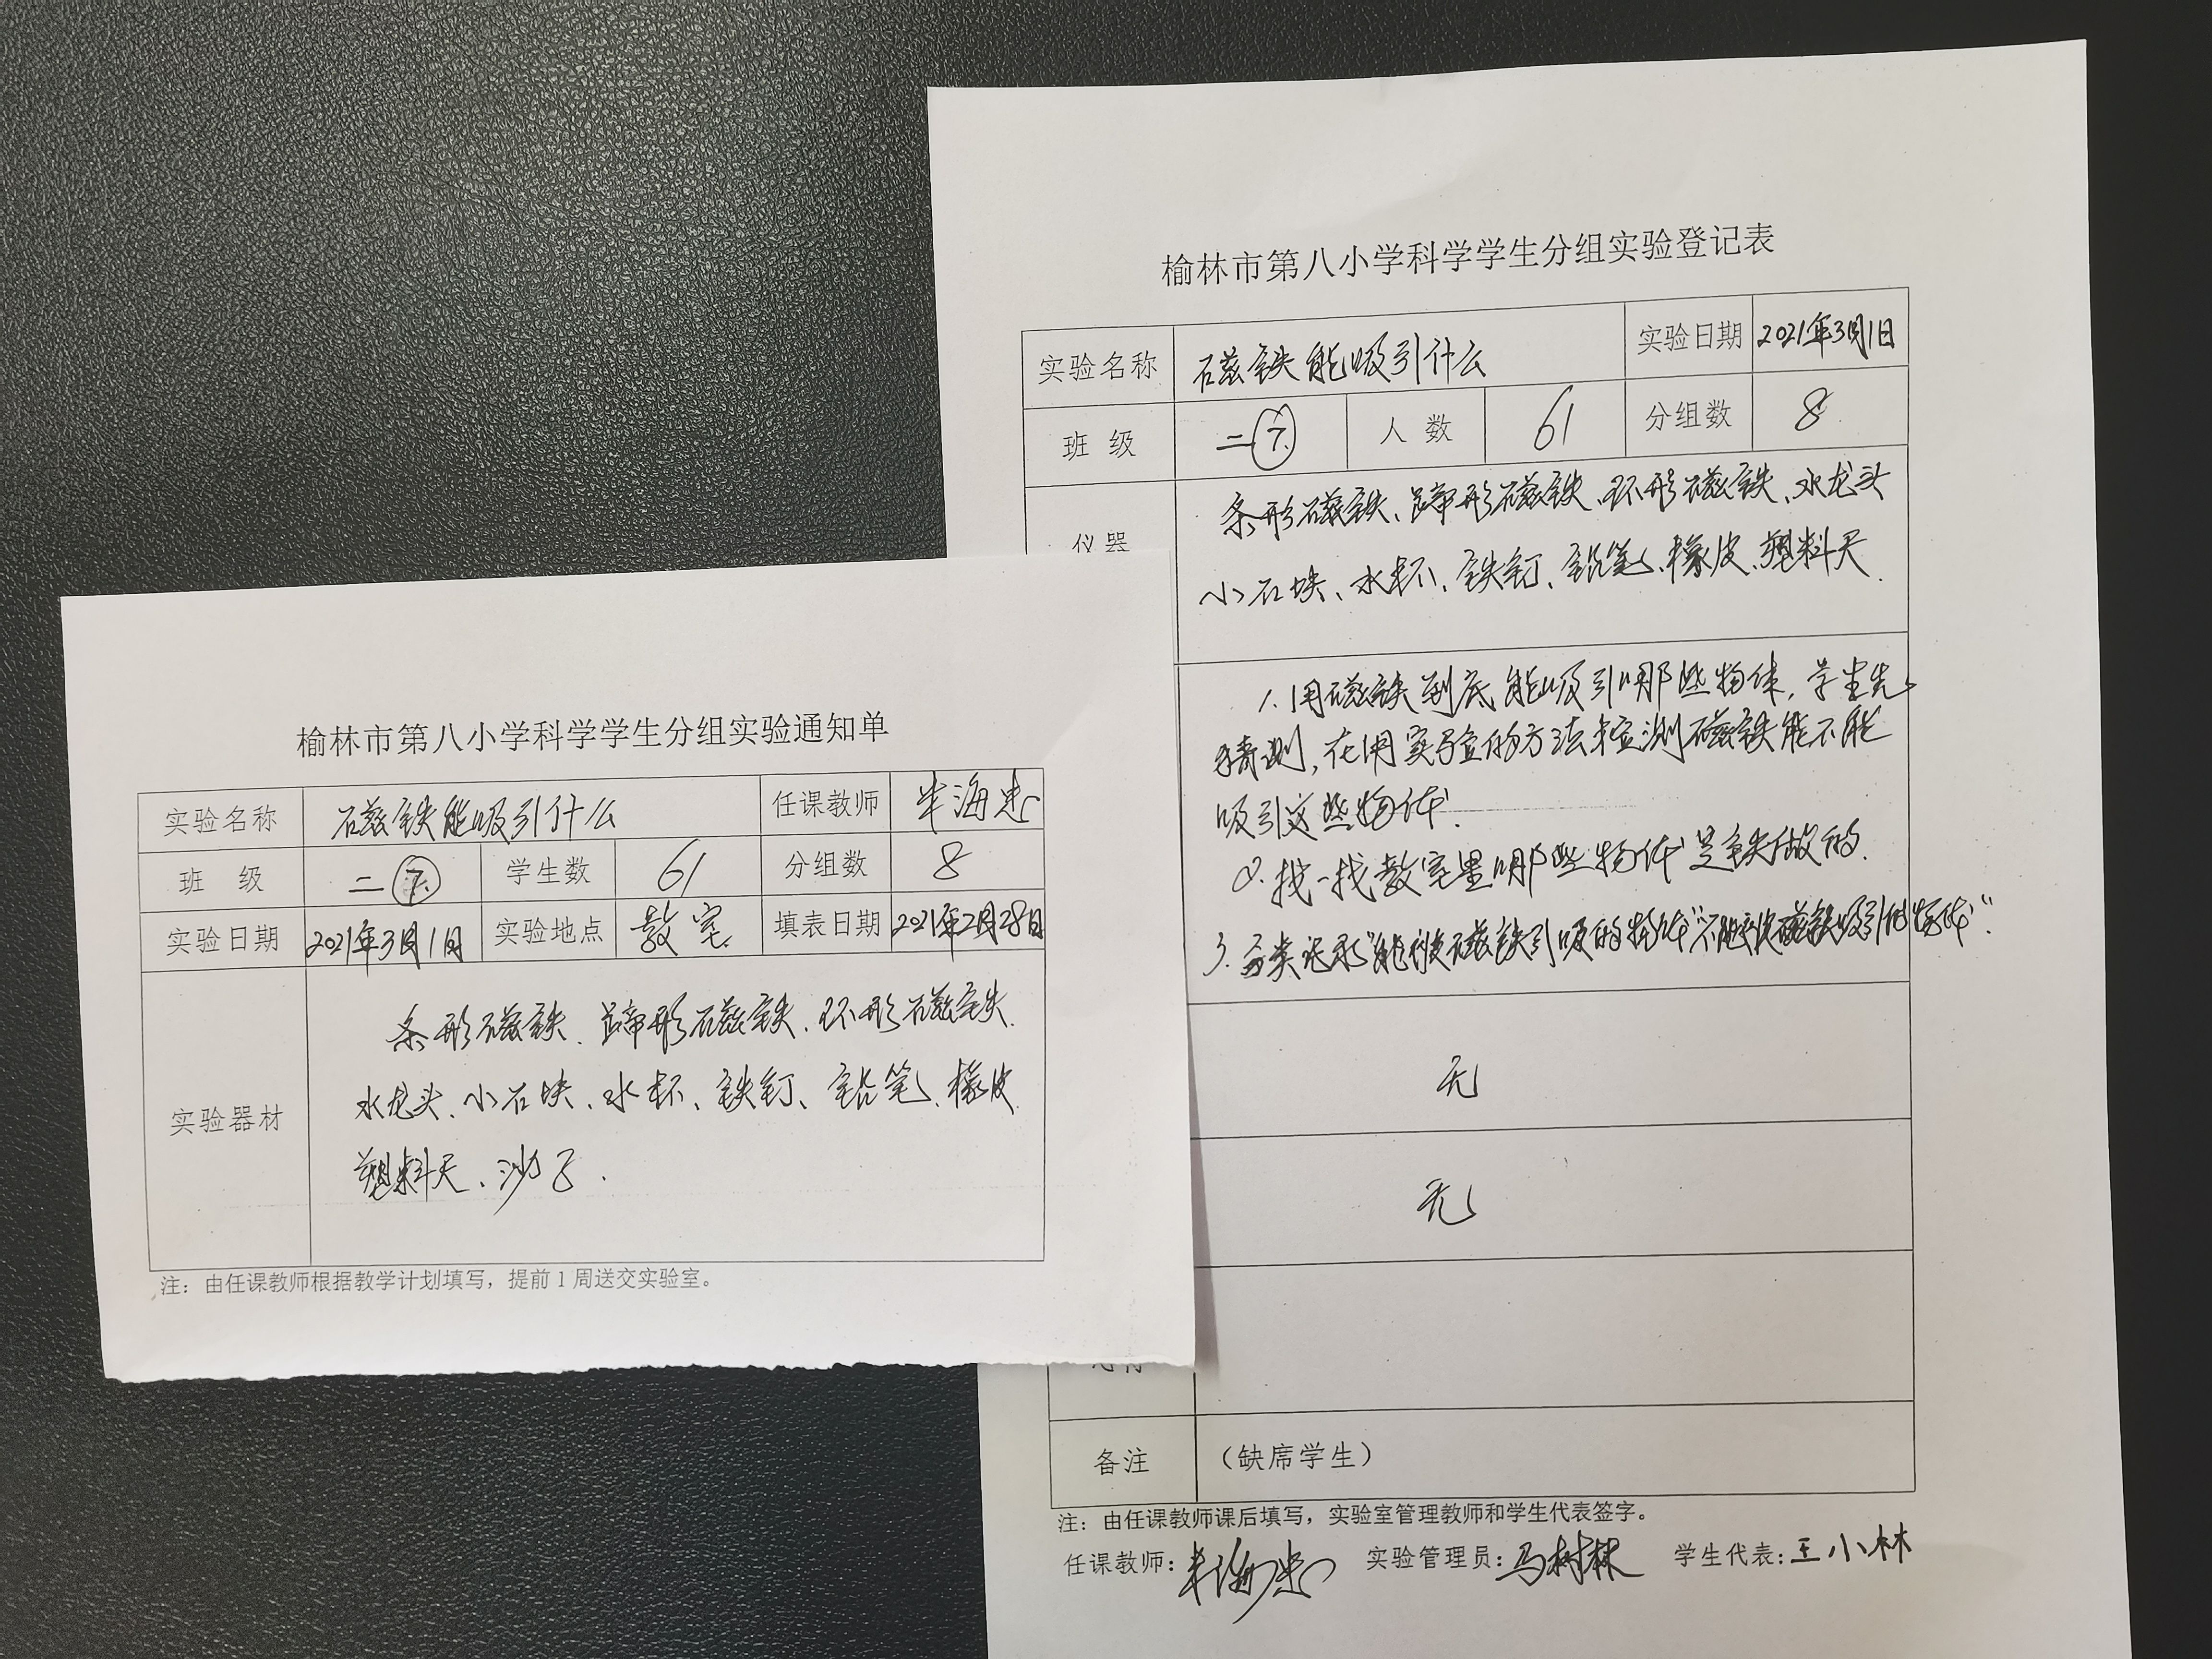 榆林市第八小学科学学生分组实验通知单
实验名称 磁铁能吸引什么 任课教师 海忠
班 级 二⑦ 学生数 61 分组数 8
实验日期 2021年3月1日 实验地点 教室 填表日期 2021年2月28日
实验器材
条形磁铁、蹄形磁铁、环形磁铁、
水龙头、小石块、水杯、铁钉、铅笔、橡皮
塑料尺、沙子.
注：由任课教师根据教学计划填写，提前1周送交实验室。
榆林市第八小学科学学生分组实验登记表
实验名称 磁铁能吸引什么 实验日期 2021年3月1日
班 级 二⑦ 人 数 61 分组数 8
仪器
条形磁铁、蹄形磁铁、环形磁铁、水龙头
小石块、水杯、铁钉、铅笔、橡皮、塑料尺.
1.用磁铁到底能吸引哪些物体，学生先
猜测，在用实验的方法来检测磁铁能不能
吸引这些物体.
2.找一找教室里哪些物体是铁做的.
3.分类记录“能被磁铁引吸的物体”“不能被磁铁吸引的物体”.
无
无
备注 （缺席学生）
注：由任课教师课后填写，实验室管理教师和学生代表签字。
任课教师： 海忠 实验管理员：马树林 学生代表：王小林